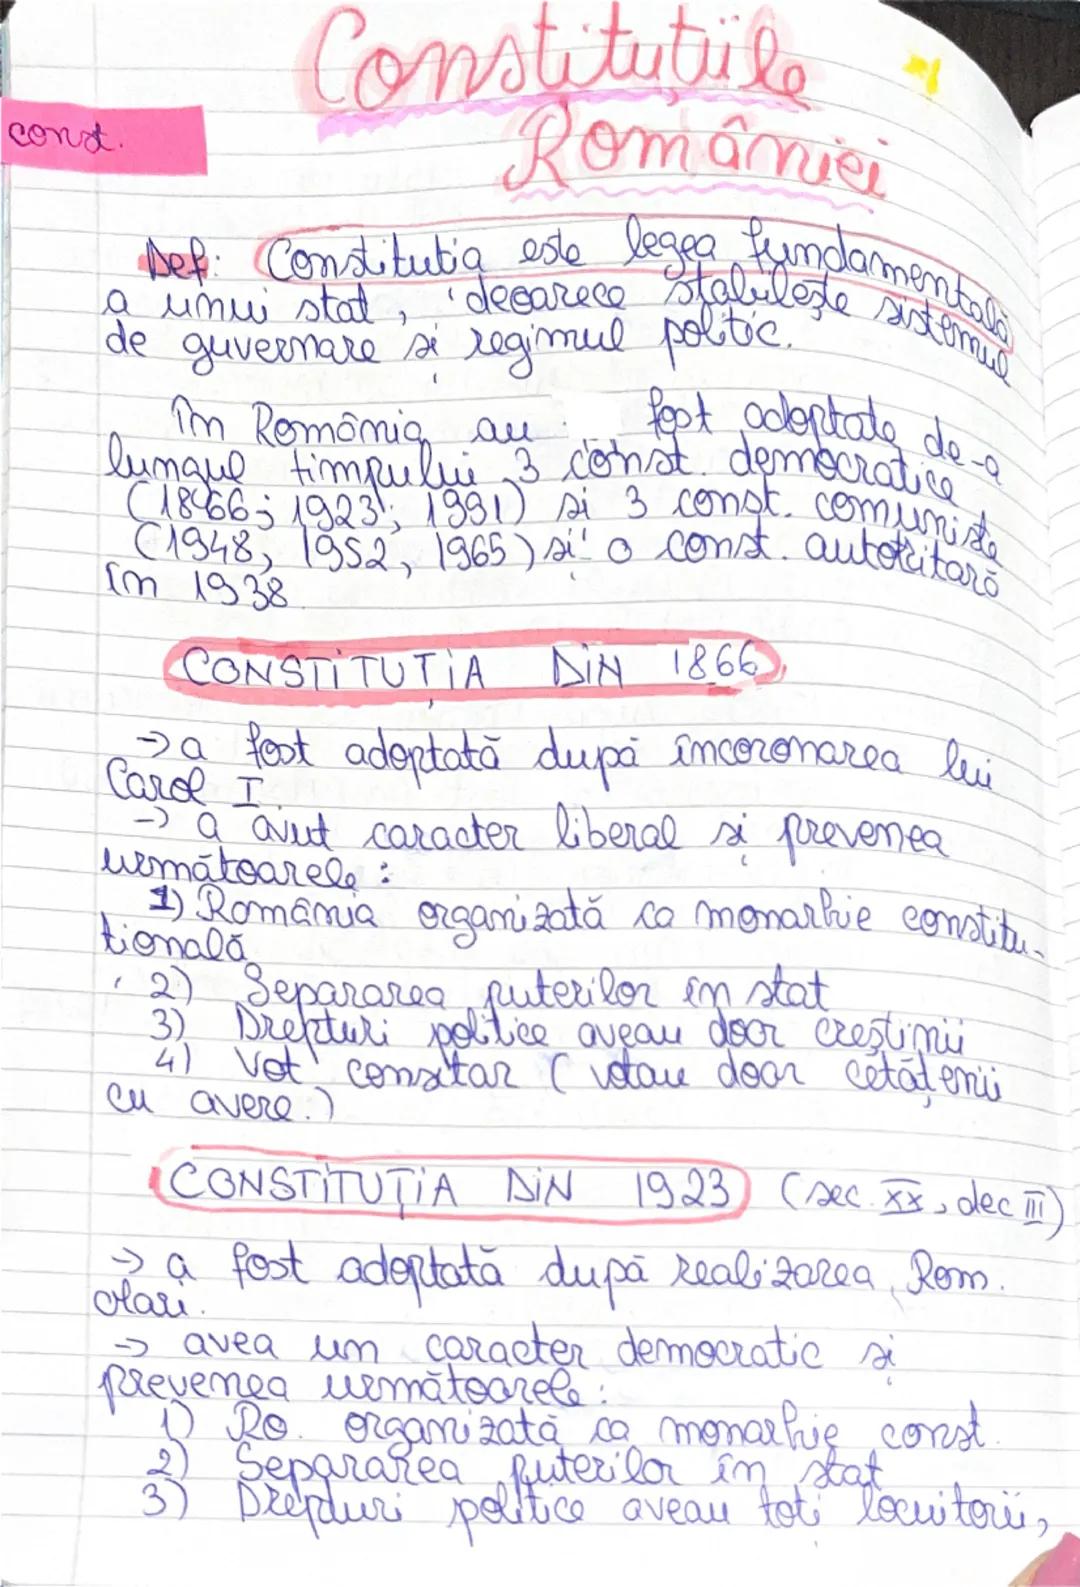 Constituțiile
României
const.
Def: Constituția este legea fundamentală
a unui stat, deoarece stabilește sistemul
de guvernare și regimul politic.
în România au fost adoptate de-a
lungul timpului 3 const. democratice
(1866; 1923; 1991) și 3 const. comuniste
(1948, 1952, 1965) și o const. autoritară
în 1938
CONSTITUȚIA DIN 1866
→ a fost adoptată după încoronarea lui
Carol I
→ a avut caracter liberal și prevenea
următoarele:
1) România organizată ca monarhie constitu-
țională
2) Separarea puterilor în stat
3) Drepturi politice aveau doar creștinii
4) Vot consitar (votau doar cetățenii
cu avere.)
CONSTITUȚIA DIN 1923 (sec. XX, dec III)
→ a fost adoptată după realizarea Rom.
Mari.
→ avea un caracter democratic și
prevenea următoarele:
1) Ro. organizată ca monarhie const.
2) Separarea puterilor în stat
3) Drepturi politice aveau toți locuitorii,